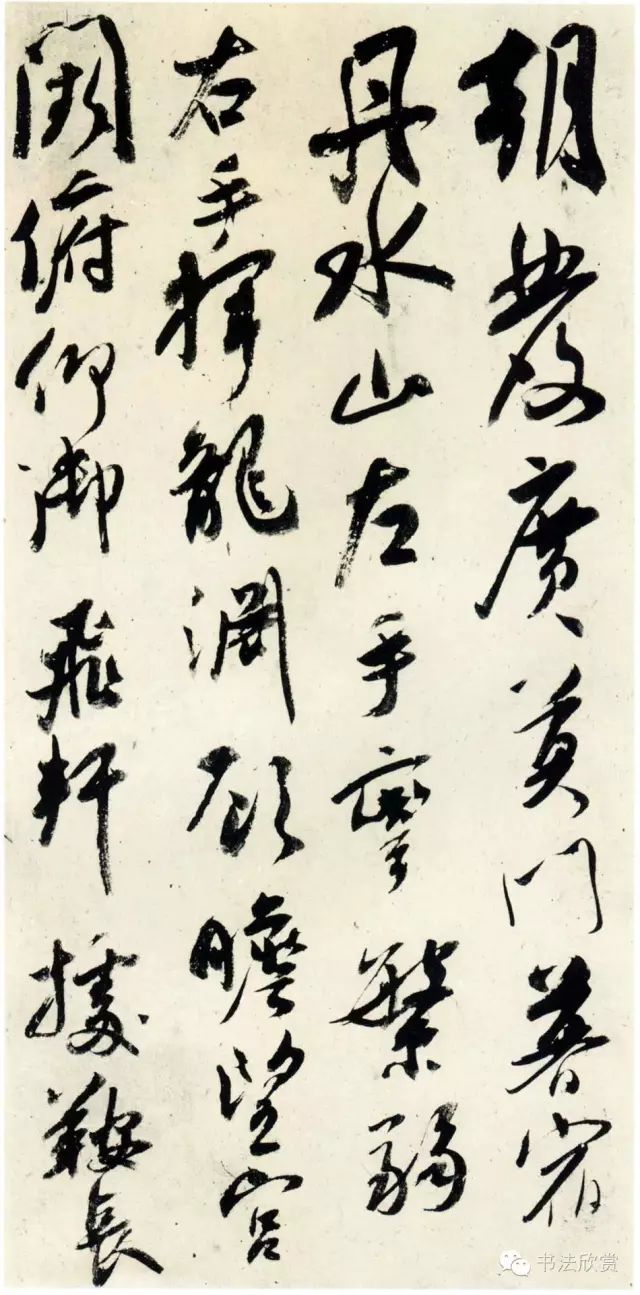 朝發廣莫門暮宿
丹水山左手彎繁弱
右手揮龍淵顧瞻望宮
闕俯仰御飛軒據鞍長
书法欣赏